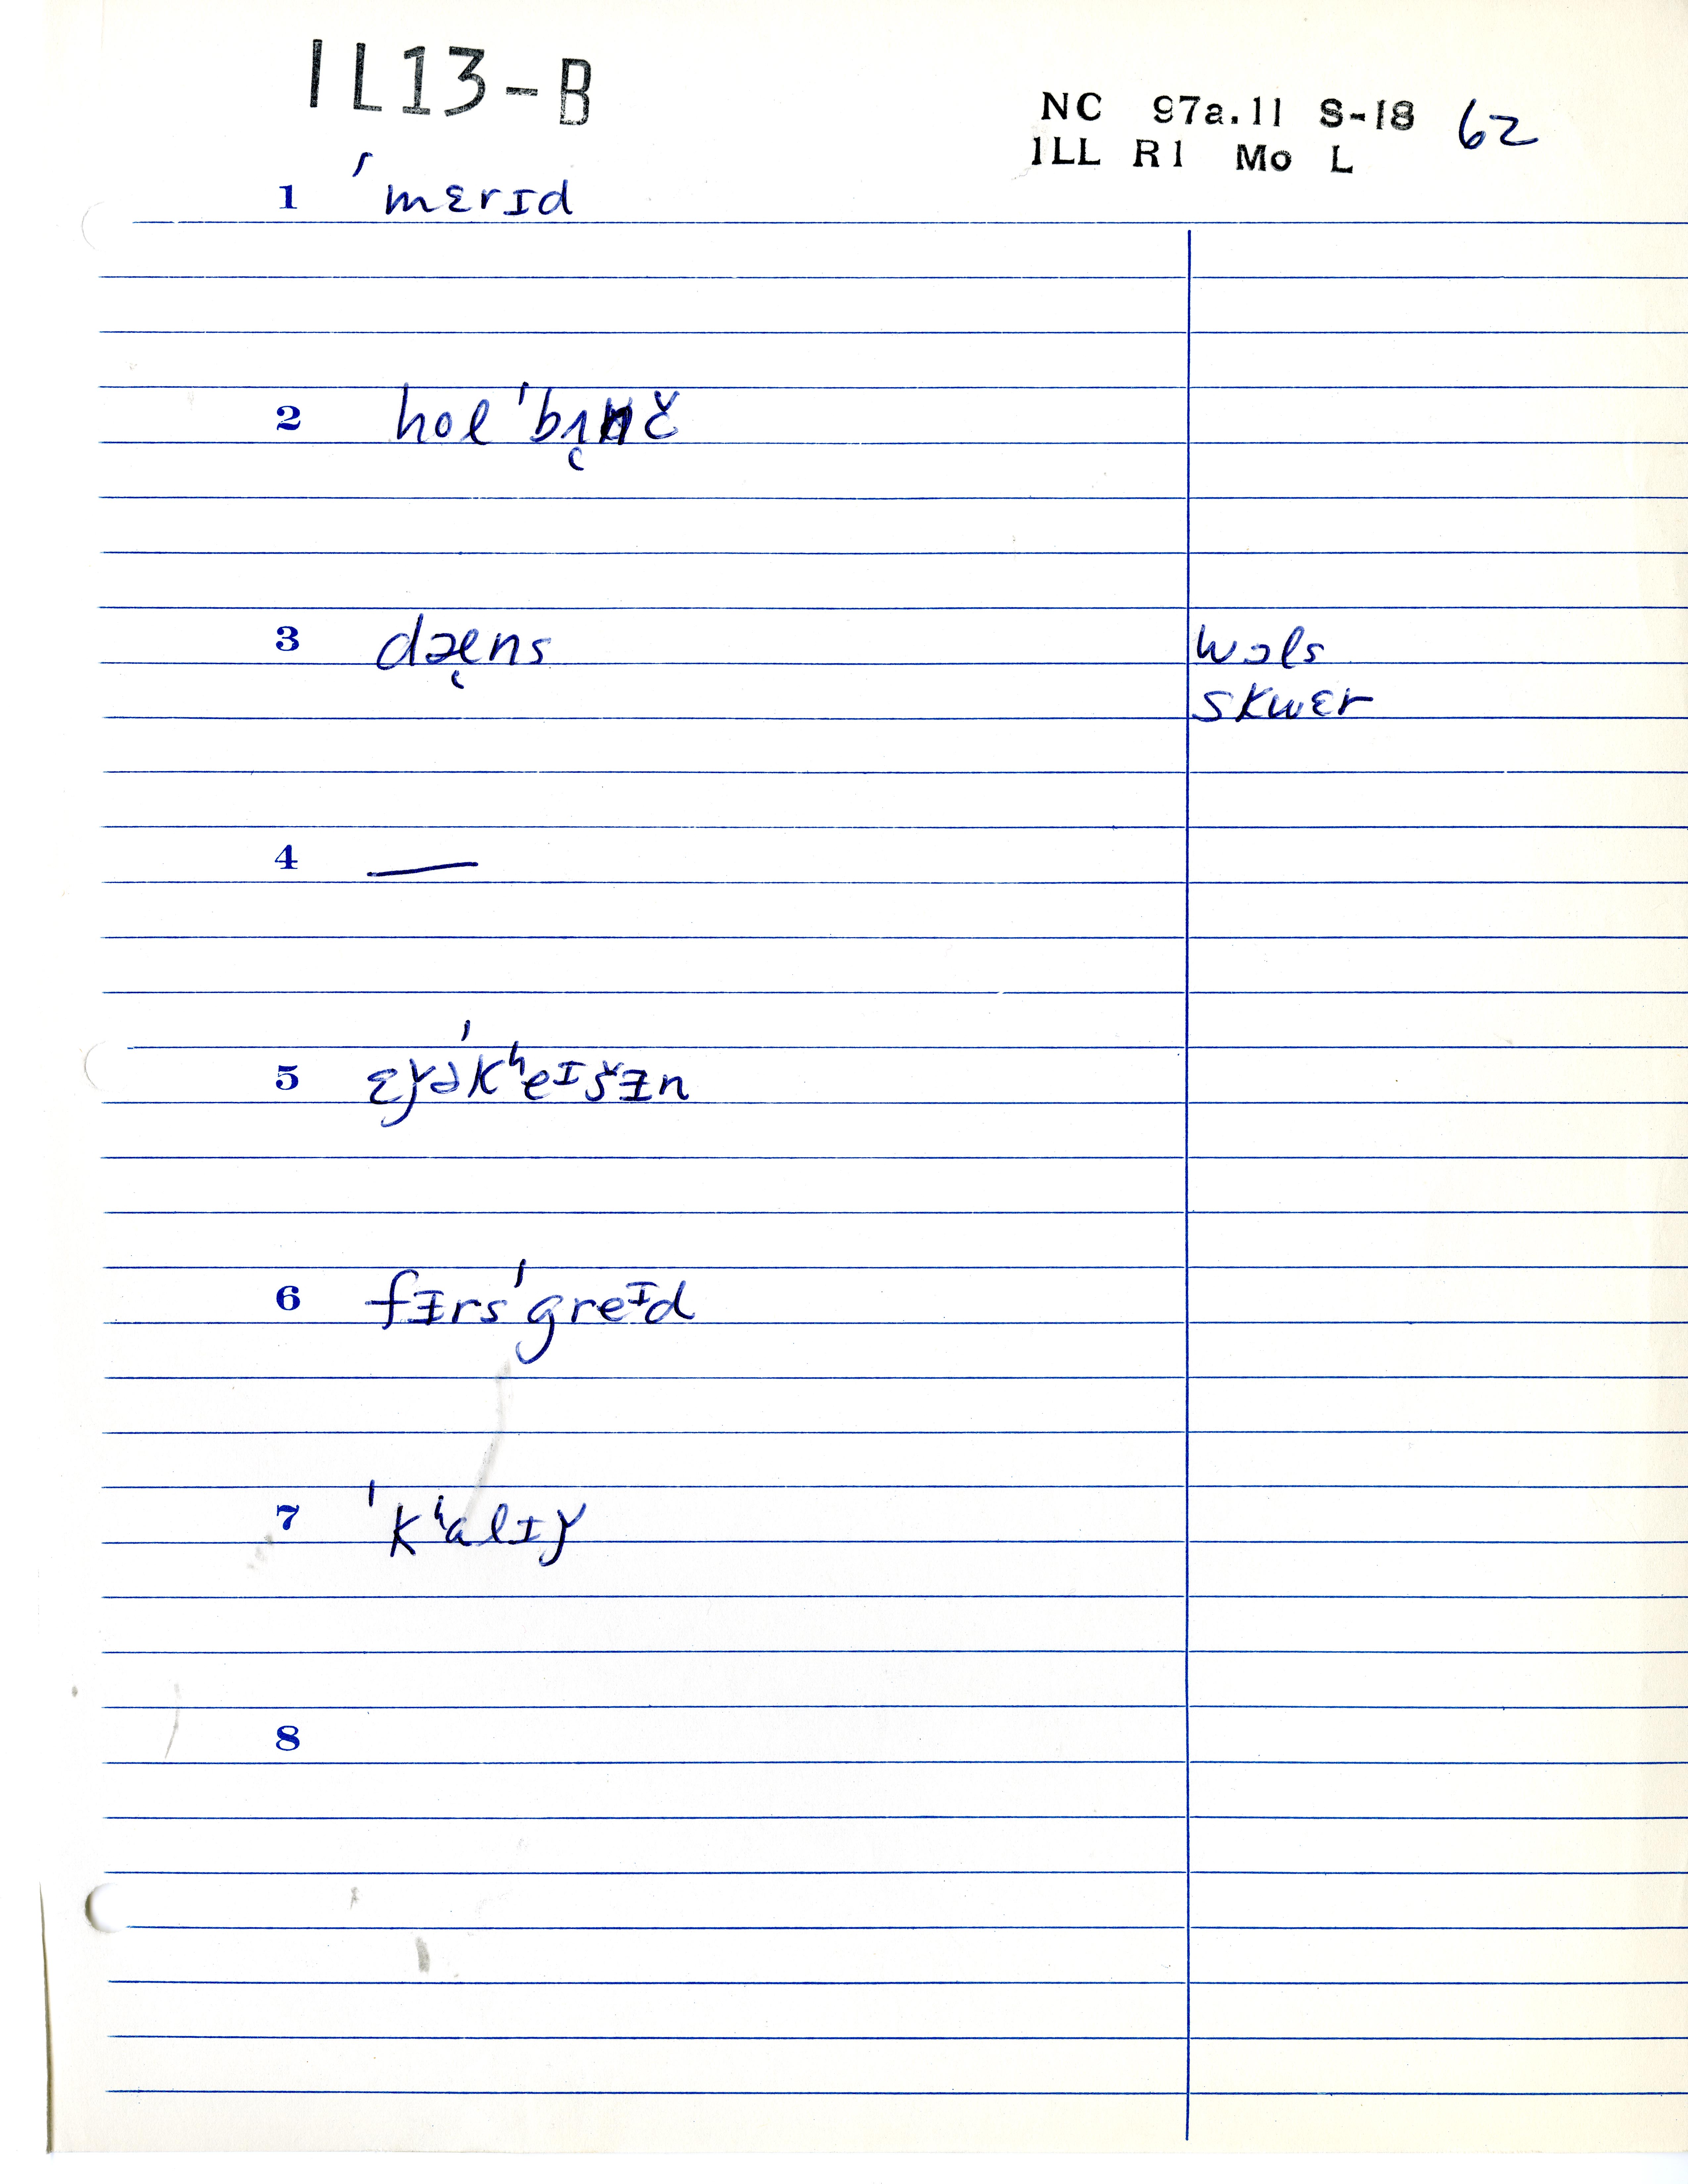 IL13-B
NC 97a.11 S-18 62
ILL R1 Mo L
1 ˈmɛrɪd
2 hol ˈbɪ̜nč
3 dæ̜ns wɔls
skwɛr
4 —
5 ɛǰəˈkʰeᶦšɪ̵n
6 fɪ̵rsˈgreᶦd
7 ˈkʰalɪǰ
8